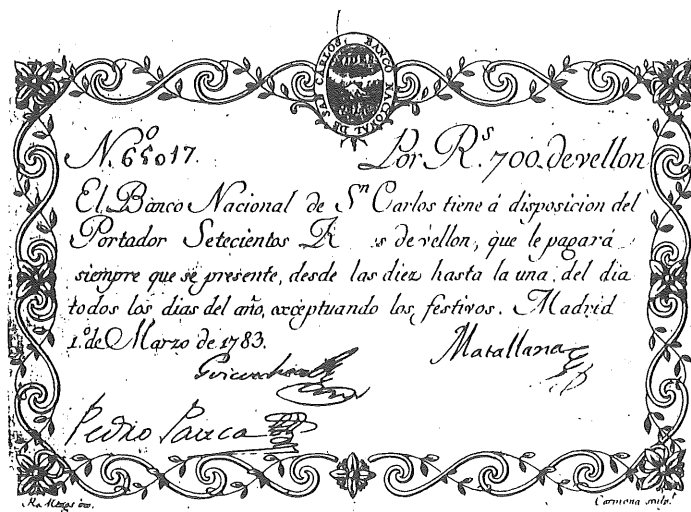 BANCO NACIONAL DE SAN CARLOS
N.º 65017.
Por R.s 700. de vellon
El Banco Nacional de S.n Carlos tiene á disposicion del
Portador Setecientos R s de vellon, que le pagará
siempre que se presente, desde las diez hasta la una, del dia
todos los dias del año, exceptuando los festivos. Madrid
1.º de Marzo de 1783.
Matallana
Pedro
Carmona sculp.t